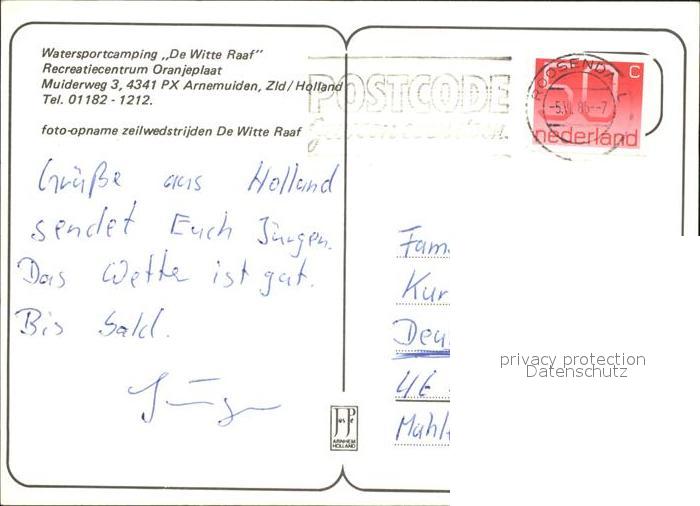 Watersportcamping „De Witte Raaf”
Recreatiecentrum Oranjeplaat
Muiderweg 3, 4341 PX Arnemuiden, Zld/Holland
Tel. 01182 - 1212.
foto-opname zeilwedstrijden De Witte Raaf
POSTCODE
ROOSENDAAL
C
60
nederland
Grüße aus Holland
sendet Euch Jürgen.
Das Wetter ist gut.
Bis bald.
Jürgen
Fam.
Kur
Deu
46
Mahl
privacy protection
Datenschutz
JosPé
ARNHEM
HOLLAND